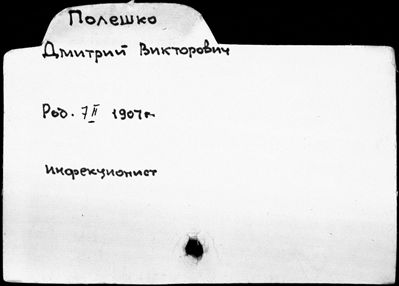 Полешко
Дмитрий Викторович
Род. 7 II 1907 г.
инфекционист